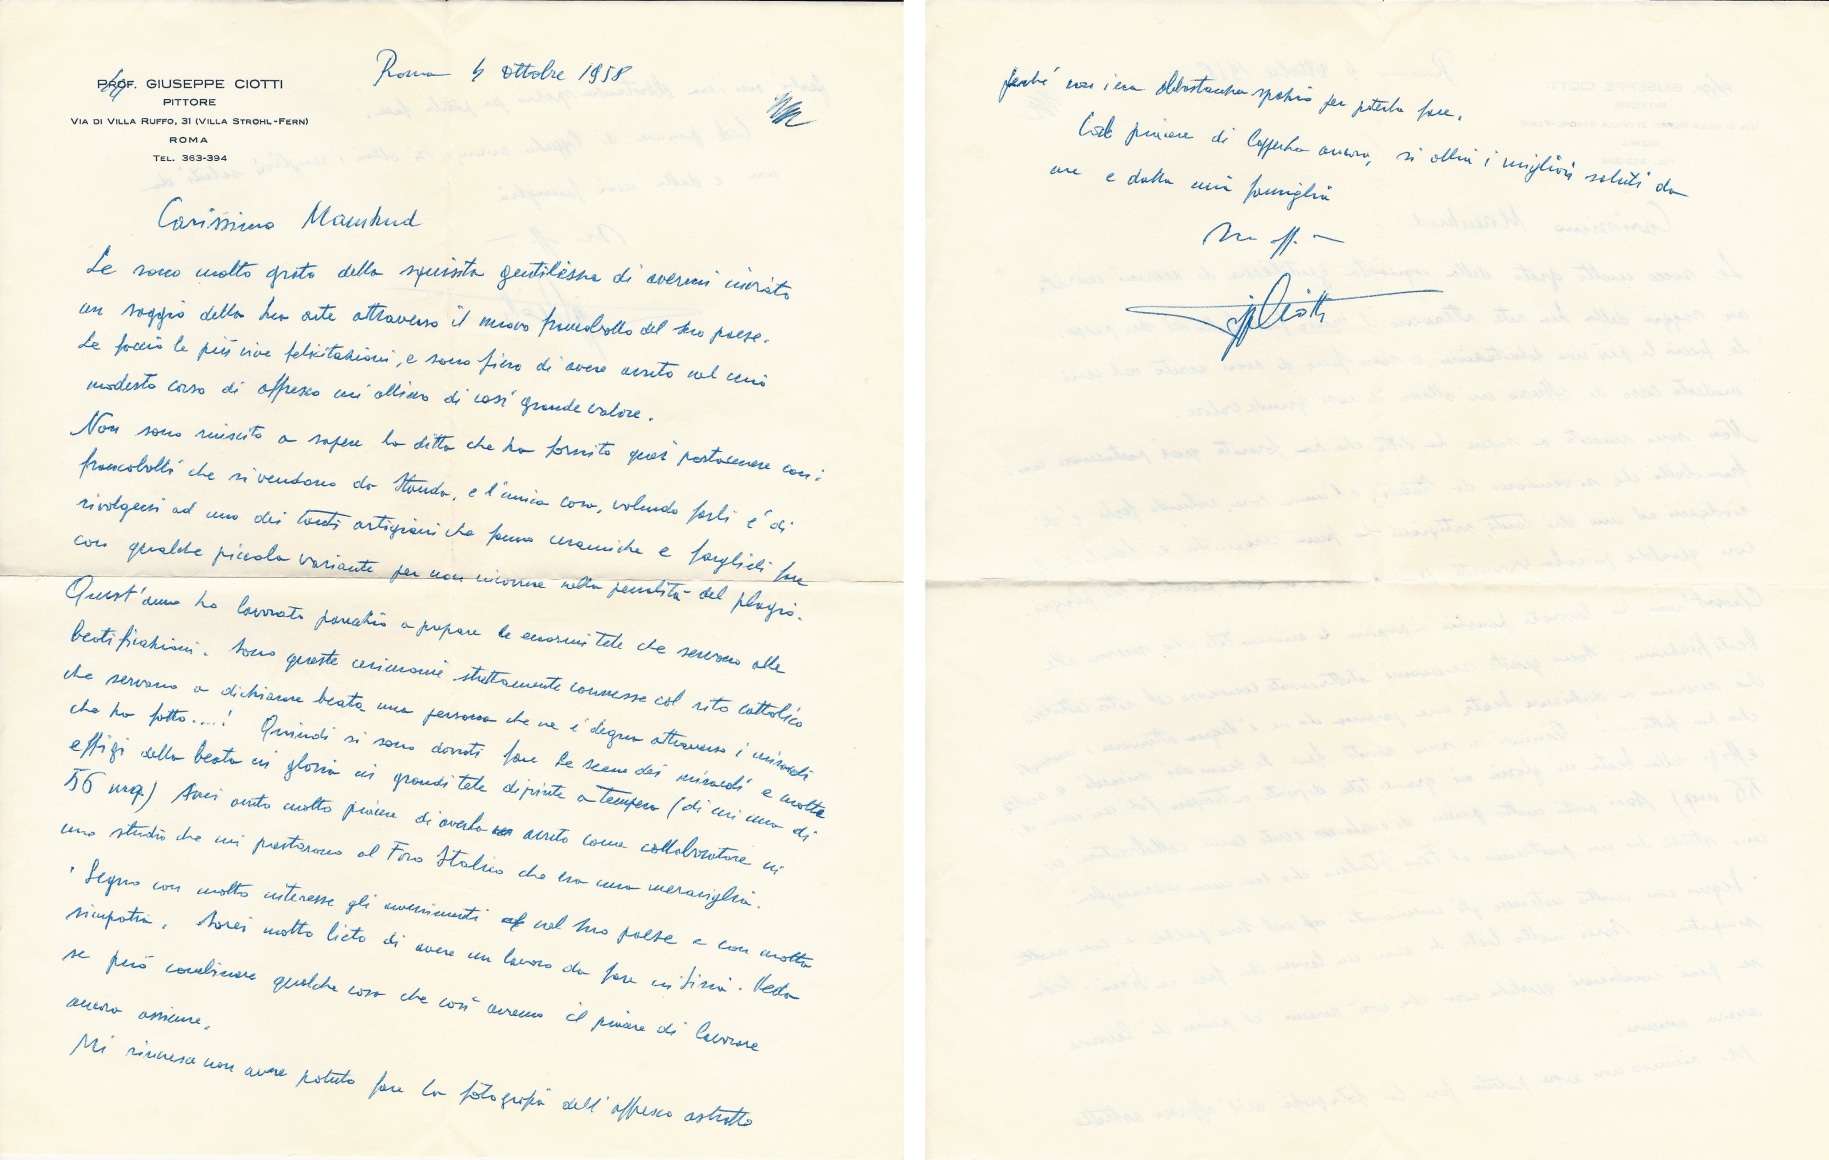 PROF. GIUSEPPE CIOTTI
PITTORE
VIA DI VILLA RUFFO, 31 (VILLA STROHL-FERN)
ROMA
TEL. 363-394
Roma 4 ottobre 1958
Carissimo Mamhud
Le sono molto grato della squisita gentilezza di avermi inviato
un saggio della sua arte attraverso il nuovo francobollo del suo paese.
Le faccio le più vive felicitazioni, e sono fiero di avere avuto nel mio
modesto corso di affresco un allievo di così grande valore.
Non sono riuscito a sapere la ditta che ha fornito quei portacenere con i
francobolli che si vendono da Standa, e l'unica cosa, volendo farli è di
rivolgersi ad uno dei tanti artigiani che fanno ceramiche e farglieli fare
con qualche piccola variante per non incorrere nella penalità del plagio.
Quest'anno ho lavorato parecchio a preparare le enormi tele che servono alle
beatificazioni. Sono queste cerimonie strettamente connesse col rito cattolico
che servono a dichiarare beata una persona che ne è degna attraverso i miracoli
che ha fatto....! Quindi si sono dovuti fare le scene dei miracoli e molte
effigi della beata in gloria in grandi tele dipinte a tempera (di cui una di
56 mq.) Avrei avuto molto piacere di averla avuto come collaboratore in
uno studio che mi prestarono al Foro Italico che era una meraviglia.
Seguo con molto interesse gli avvenimenti nel suo paese e con molta
simpatia. Sarei molto lieto di avere un lavoro da fare in Siria. Veda
se può combinare qualche cosa che così avremo il piacere di lavorare
ancora assieme.
Mi rincresce non avere potuto fare la fotografia dell'affresco astratto
perché non c'era abbastanza spazio per poterla fare.
Col piacere di leggerla ancora, si abbia i migliori saluti da
me e dalla mia famiglia
Suo aff.mo
G Ciotti